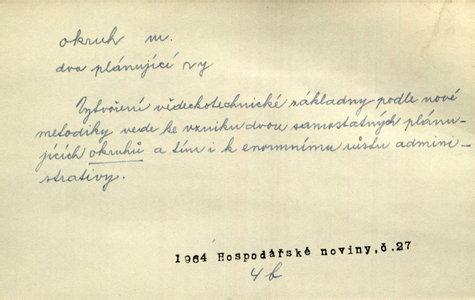 okruh m.
dva plánující ry
Vytvoření vědeckotechnické základny podle nové
metodiky vede ke vzniku dvou samostatných plánu-
jících okruhů a tím i k enormnímu růstu admini-
strativy.
1964 Hospodářské noviny,č.27
4b